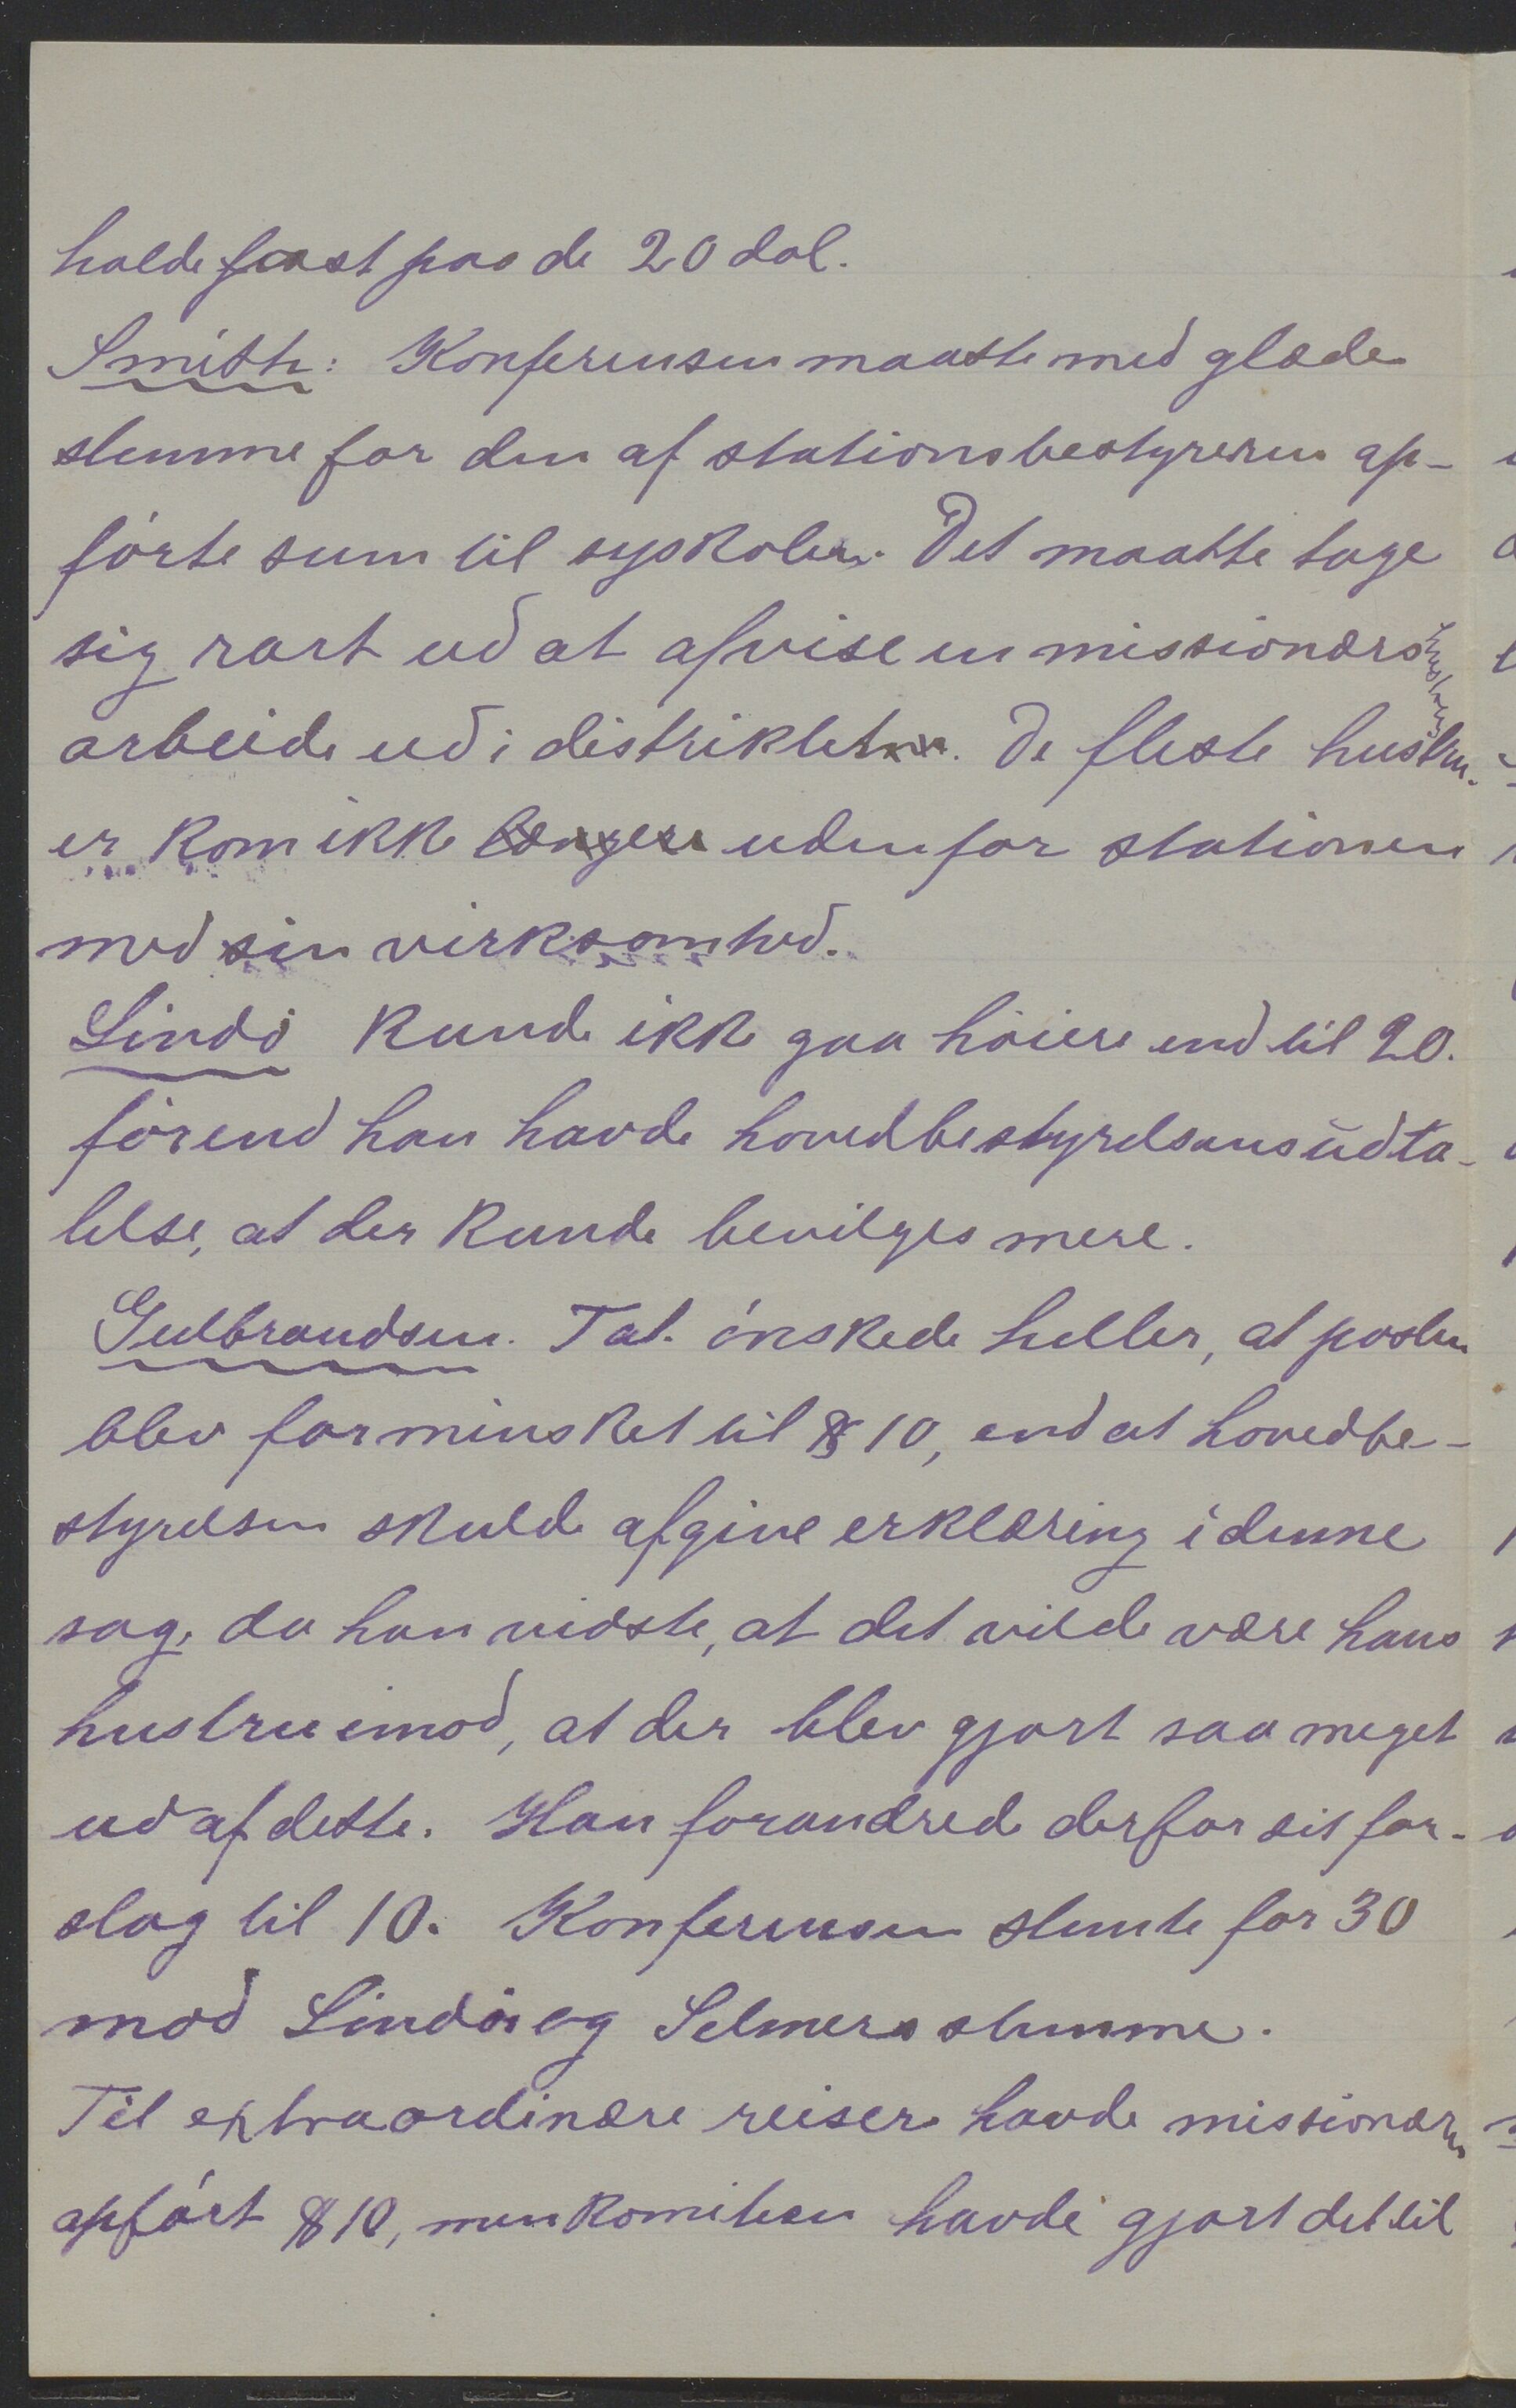 holde fast paa de 20 dol.
Smith: Konferensen maatte med glæde
stemme for den af stationsbestyreren op-
förte sum til syskolen. Det maatte tage
sig rart ud at afvise en missionærs hustrus
arbeide ud i distriktet. De fleste hustru-
er kom ikke længere udenfor stationen
med sin virksomhed.
Lindö kunde ikke gaa höiere end til 20.
förend han havde hovedbestyrelsens udta-
lelse, at der kunde bevilges mere.
Gulbrandsen. Tal. önskede heller, at posten
blev forminsket til $ 10, end at hovedbe-
styrelsen skulde afgive erklæring i denne
sag, da han vidste, at det vilde være hans
hustru imod, at der blev gjort saa meget
ud af dette. Han forandred derfor sit for-
slag til 10. Konferensen stemte for 30
mod Lindös og Selmers stemme.
Til extraordinære reiser havde missionæren
opfört $ 10, men komiteen havde gjort det til